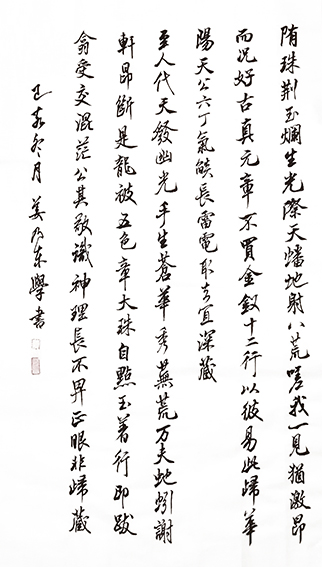 隋珠荆玉爛生光際天蟠地射八荒嗟我一見猶激昂
而況好古真元章不買金釵十二行以彼易此歸華
陽天公六丁氣燄長雷電取去宜深藏
至人代天發幽光手生蒼華秀蕪荒万夫地蚓謝
軒昂斷是龍被五色章大珠自點玉著行即跋
翕受交混茫公其敬識神理長不畀正眼非歸藏
己亥冬月 姜乃東學書